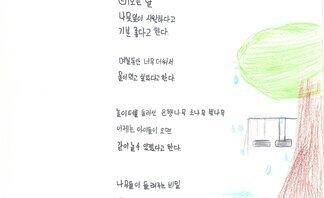 오는 날
나뭇잎이 시원하다고
기분 좋다고 한다.
며칠동안 너무 더워서
물이 먹고 싶었다고 한다.
놀이터를 둘러싼 은행나무 소나무 벚나무
이제는 아이들이 오면
같이 놀 수 있겠다고 한다.
나무들이 들려주는 비밀